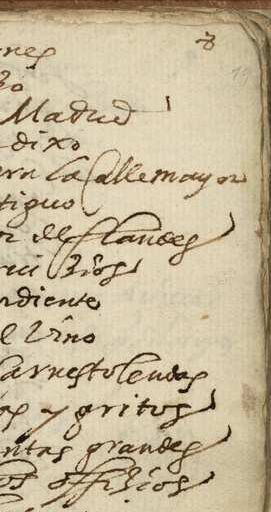 8
19
ones
Madrid
dixo
en la Calle mayor
tiguo
de flandes
rios
ndiente
el vino
Carnestolendas
as y gritos
ntas grandes
os offiçios